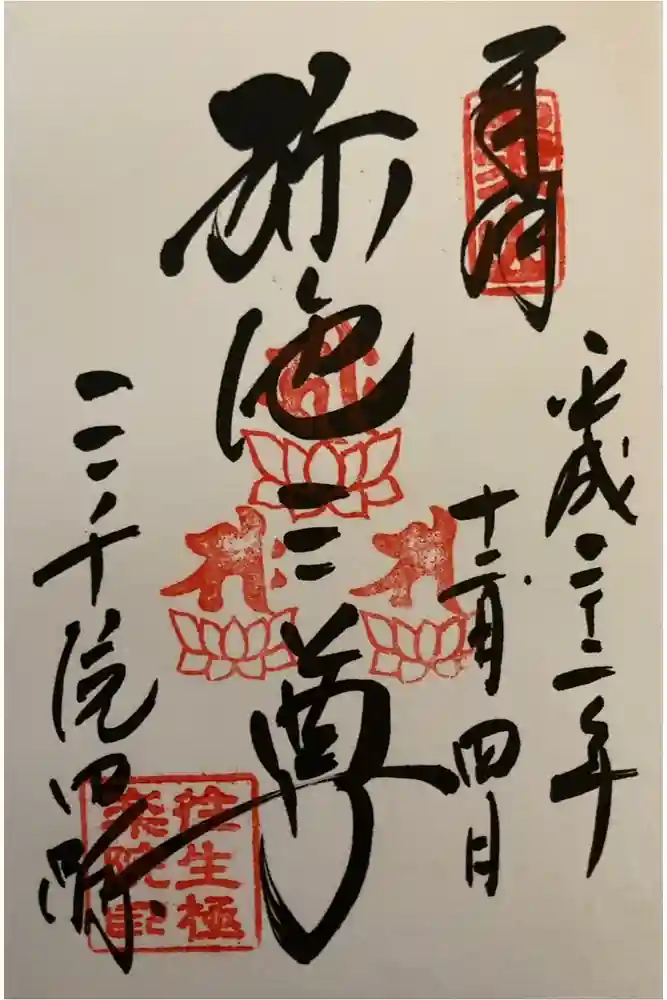 奉拝
平成二十二年
十二月四日
弥陀三尊
三千院門跡
往生極
楽院記